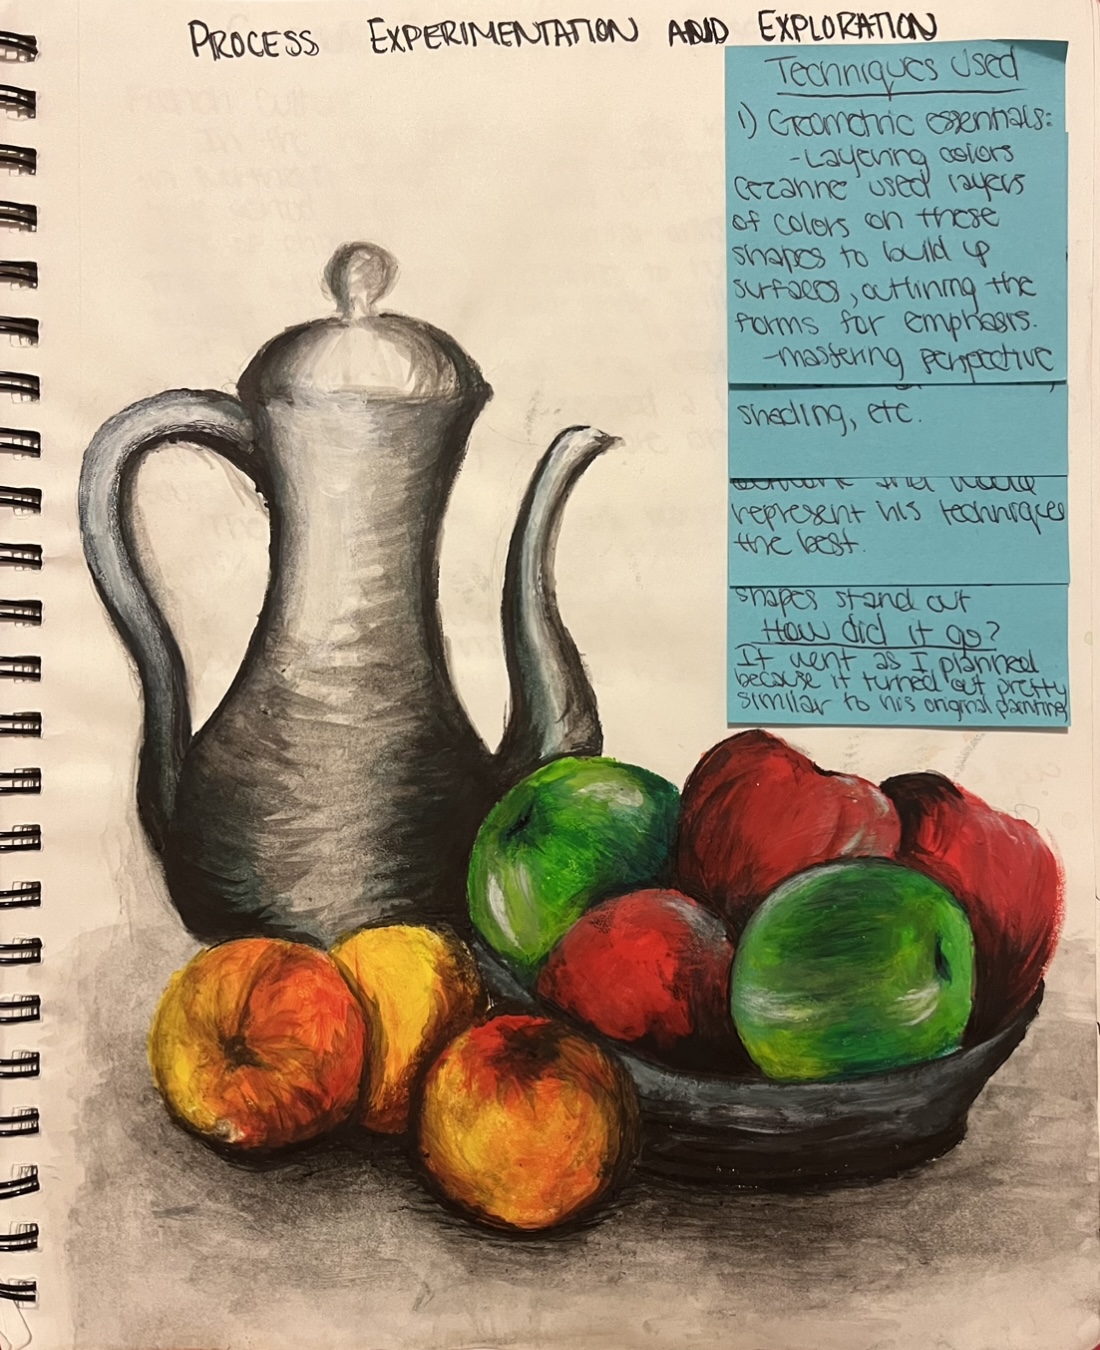 PROCESS EXPERIMENTATION AND EXPLORATION
Techniques Used
1) Geometric essentials:
-Layering colors
Cezanne used layers
of colors on these
shapes to build up
surfaces, outlining the
forms for emphasis.
-mastering perspective
shading, etc.
that would
represent his techniques
the best.
shapes stand out
How did it go?
It went as I planned
because it turned out pretty
similar to his original painting